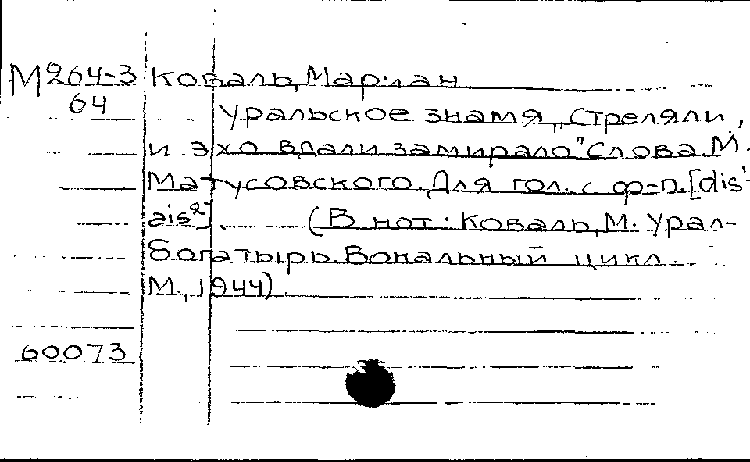 М264-3 Коваль, Мариан
64 Уральское знамя „Стреляли,
и эхо вдали замирало" Слова М.
Матусовского. Для гол. с ф-п. [dis¹-
ais²]. (В нот: Коваль, М. Урал-
богатырь. Вокальный цикл.
М., 1944).
60073